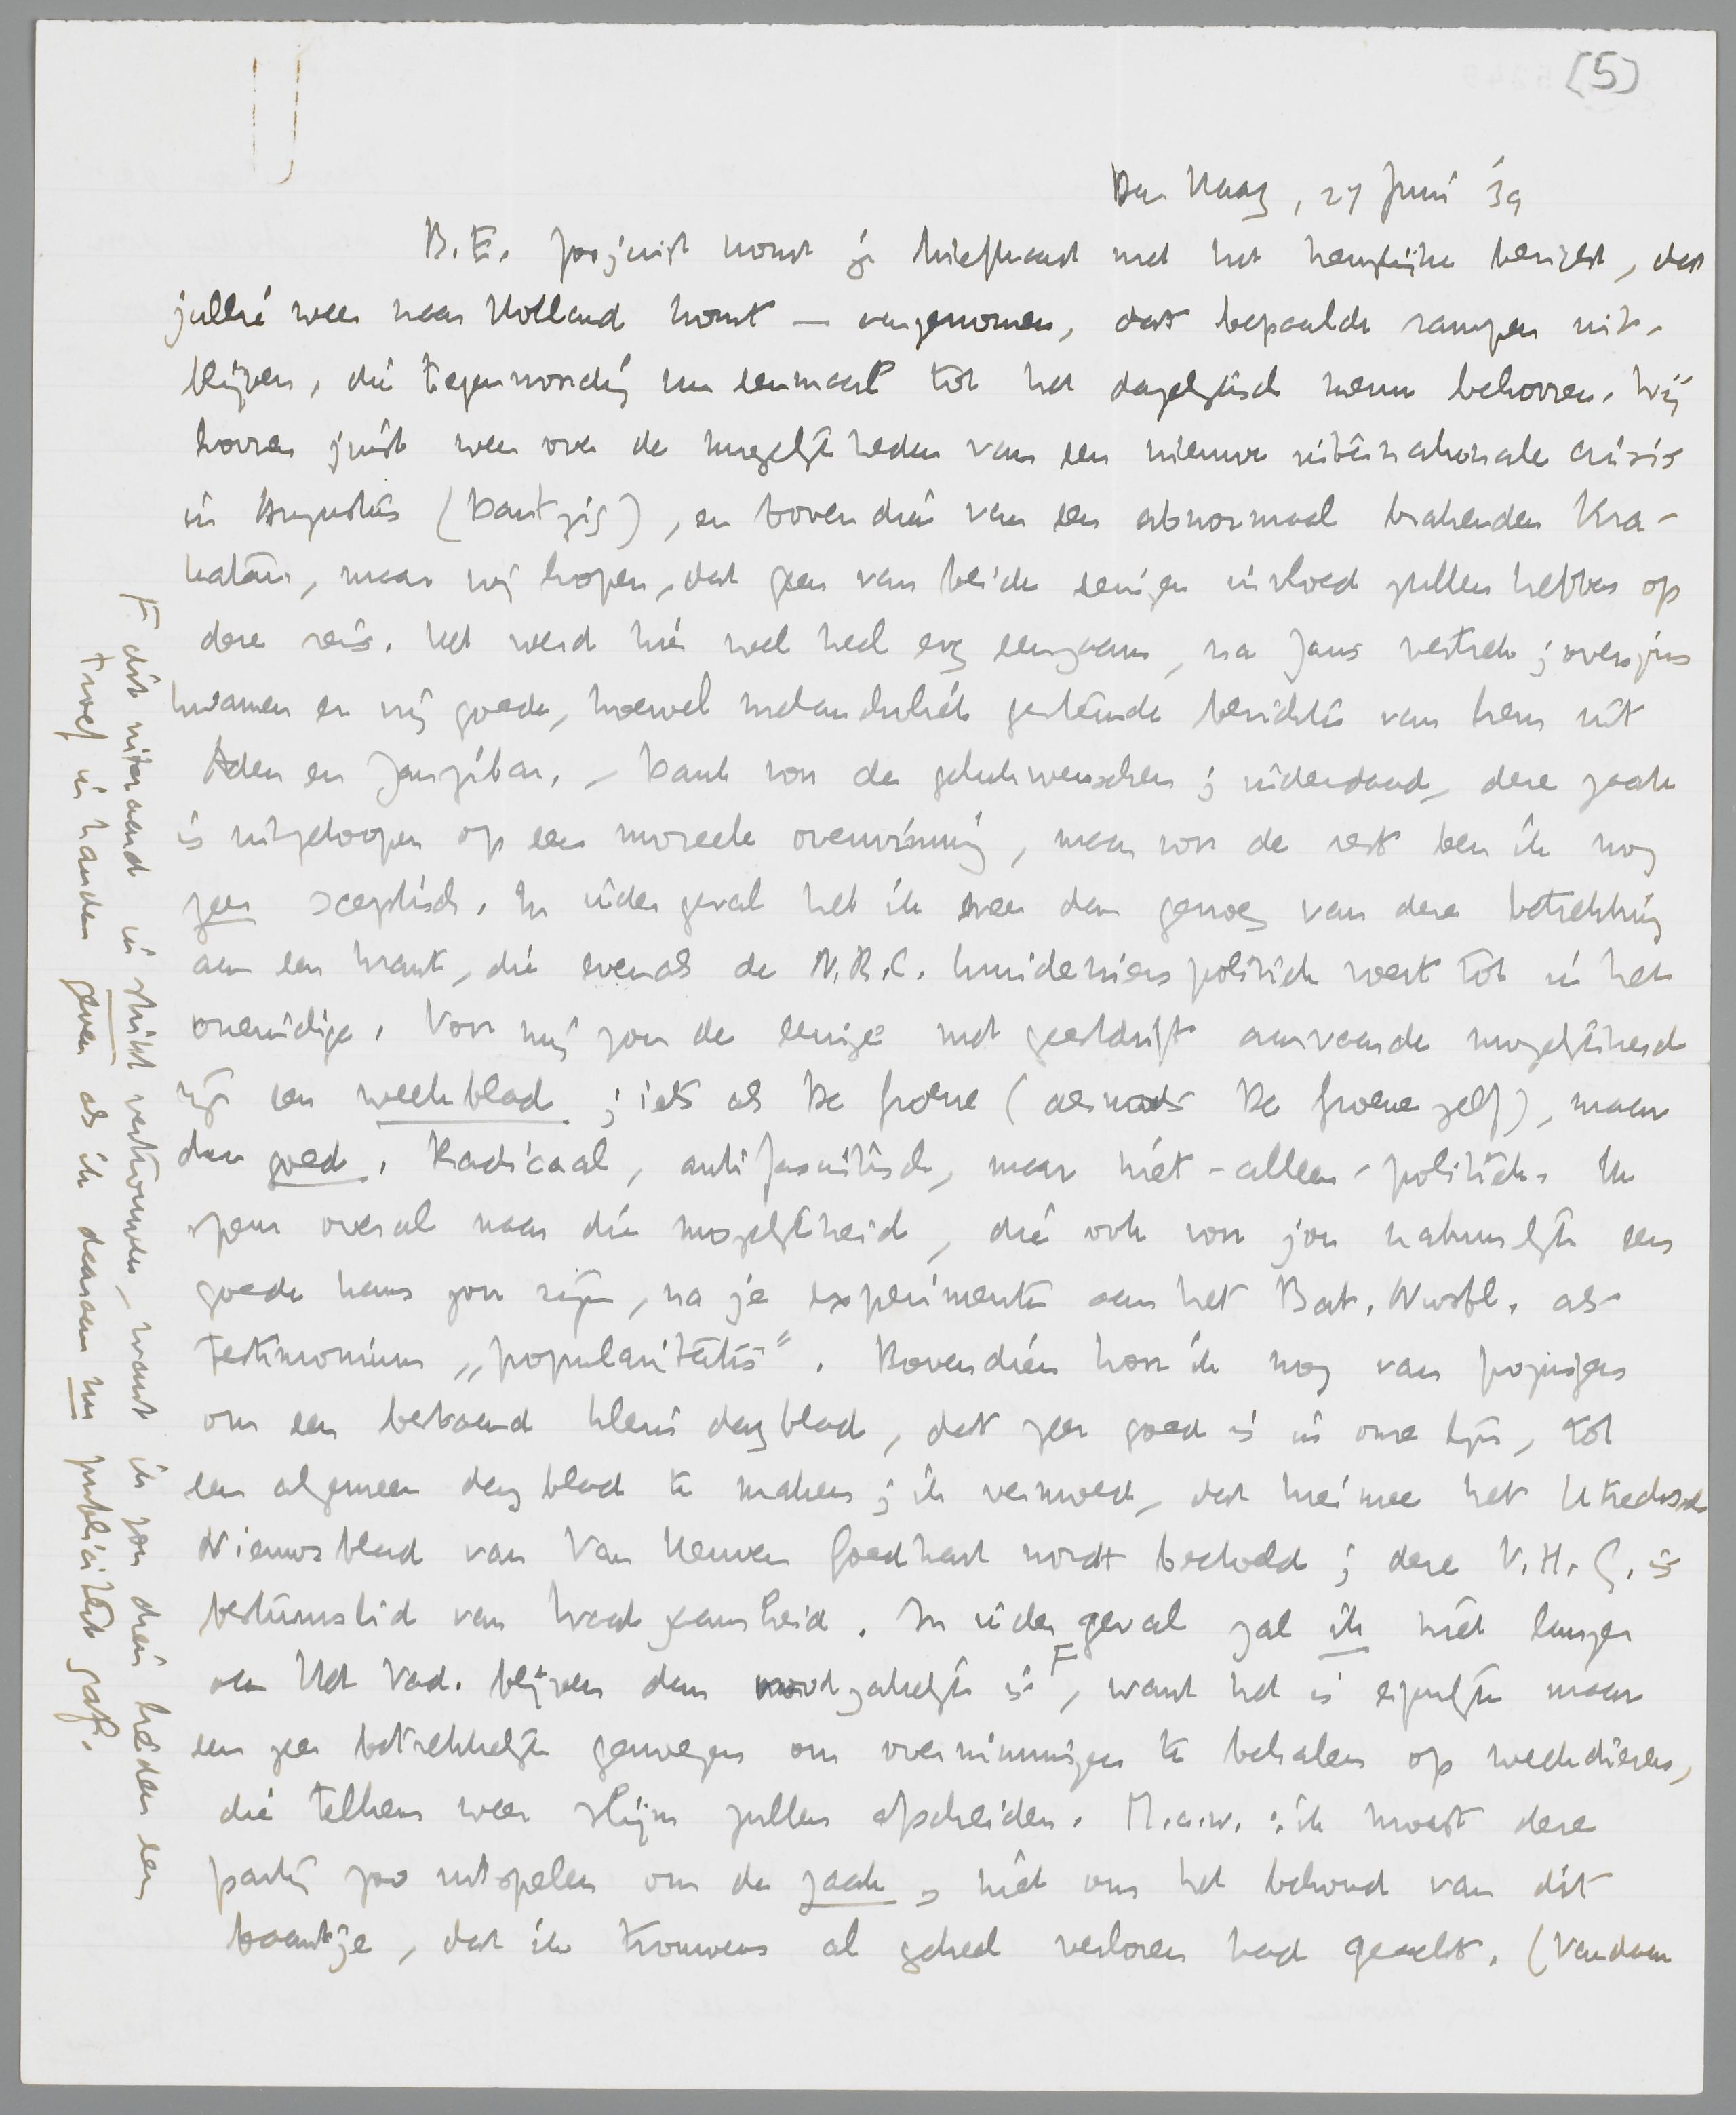 (5)
Den Haag, 27 Juni '39
B.E. Zoojuist komt je briefkaart met het heugelijke bericht, dat
jullie weer naar Holland komt — aangenomen, dat bepaalde rampen uit-
blijven, die tegenwoordig nu eenmaal tot het dagelijksch menu behooren. Wij
hooren juist weer over de mogelijkheden van een nieuwe internationale crisis
in Augustus (Dantzig), en bovendien van een abnormaal brakenden Kra-
katau, maar wij hopen, dat geen van beide eenigen invloed zullen hebben op
deze reis. Het werd hier wel heel erg eenzaam, na Jans vertrek; overigens
kwamen er vrij goede, hoewel melancholiek getinte berichten van hem uit
Aden en Zanzibar. – Dank voor de gelukwenschen; inderdaad, deze zaak
is uitgeloopen op een moreele overwinning, maar voor de rest ben ik nog
zeer sceptisch. In ieder geval heb ik meer dan genoeg van deze betrekking
aan een krant, die evenals de N.R.C. kruideniers politiek voert tot in het
oneindige. Voor mij zou de eenige met geestdrift aanvaarde mogelijkheid
zijn een weekblad; iets als De Groene (desnoods De Groene zelf), maar
dan goed. Radicaal, antifascistisch, maar niet-alleen-politiek. Ik
speur overal naar die mogelijkheid, die ook voor jou natuurlijk een
goede kans zou zijn, na je experimenten aan het Bat. Nwsbl. als
testimonium „popularitatis". Bovendien hoor ik nog van pogingen
om een bestaand klein dagblad, dat zeer goed is in onze lijn, tot
een algemeen dagblad te maken; ik vermoed, dat hiermee het Utrechtsch
Nieuwsblad van Van Heuven Goedhart wordt bedoeld; deze V.H.G. is
bestuurslid van Waakzaamheid. In ieder geval zal ik niet langer
aan Het Vad. blijven dan noodzakelijk is F, want het is eigenlijk maar
een zeer betrekkelijk genoegen om overwinningen te behalen op weekdieren,
die telkens weer slijm zullen afscheiden. M.a.w.: ik moest deze
partij zoo uitspelen om de zaak, niet om het behoud van dit
baantje, dat ik trouwens al geheel verloren had geacht. (Vandaar
F dit uiteraard in strikt vertrouwen, want ik zou dien heiden een
troef in handen geven als ik daaraan nu publiciteit gaf.